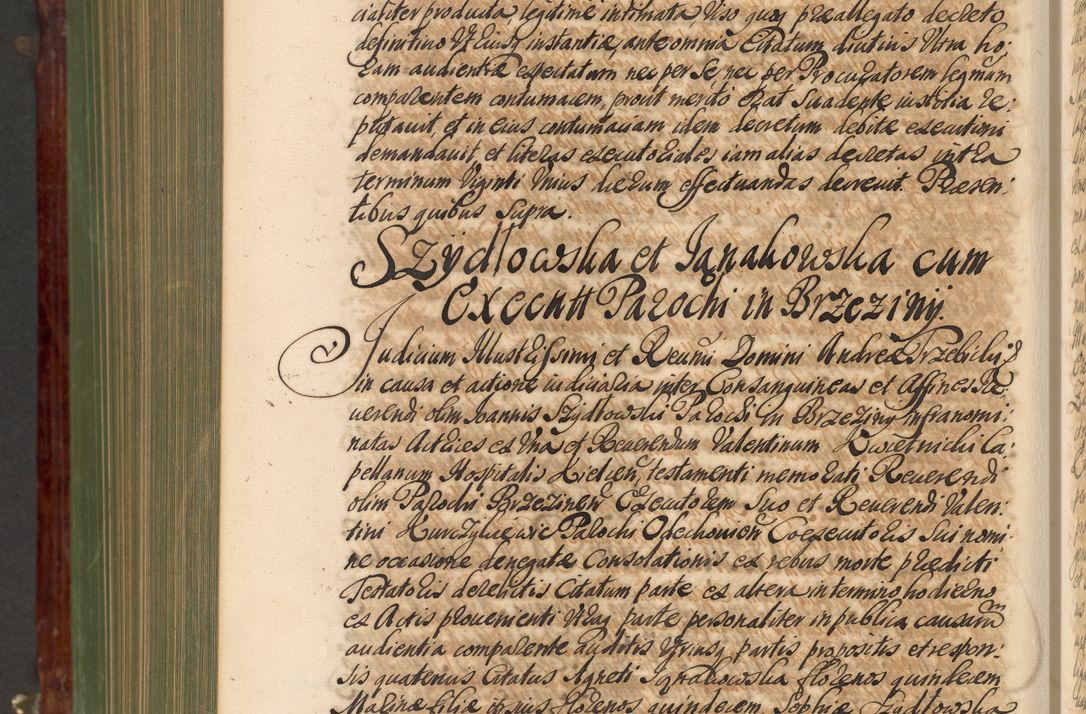 cialiter producta, legitime intimata Viso quoq præallegato decreto
definitiuo Vtriusq instantiæ, ante omnia Citatum diutius Vltra ho:
ram audientiæ expectatum nec per Se, nec per Procuratorem legmum
comparentem contumacem, prout merito erat Suadente iustitia re:
putauit, et in eius contumaciam idem decretum debitæ executioni
demandauit, et literas executoriales iam alias decretas intra
terminum Viginti Vnius dierum effectuandas decreuit. Præsen:
tibus quibus Supra.
Szÿdlowska et Jgnakowska cum
Executt Parochi in Brzezinÿ.
Judicium Illustrissimi et Reuñi Domini Andreæ Trzebicky
in causa et actione iudiciaria inter Consanguineas et Affines Re
uerendi olim Joannis Szÿdlowski Parochi in Brzezinÿ infranomi:
natas Actrices ex Vna et Reuerendum Valentinum Kwietnicki Ca:
pellanum Hospitalis Kielceñ, testamenti memorati Reuerendi
olim Parochi Brzezineñ Executorem Suo et Reuerendi Valen:
tini Kurczÿkiewic Parochi Odechouieñ Coexecutoris Sui nomi:
ne occasione denegatæ Consolationis ex rebus morte prædicti
Testatoris derelictis Citatum parte ex altera in termino hodierno
ex Actis prouenienti Vtraq parte personaliter in publica causarũ
audientia comparente auditis Vtriusq partis propositis et respon:
sis quatenus Citatus Agneti Jgrakowska florenos quindecem
Malinæ filiæ ipsius florenos quindecem, Sophiæ Szÿdlowska